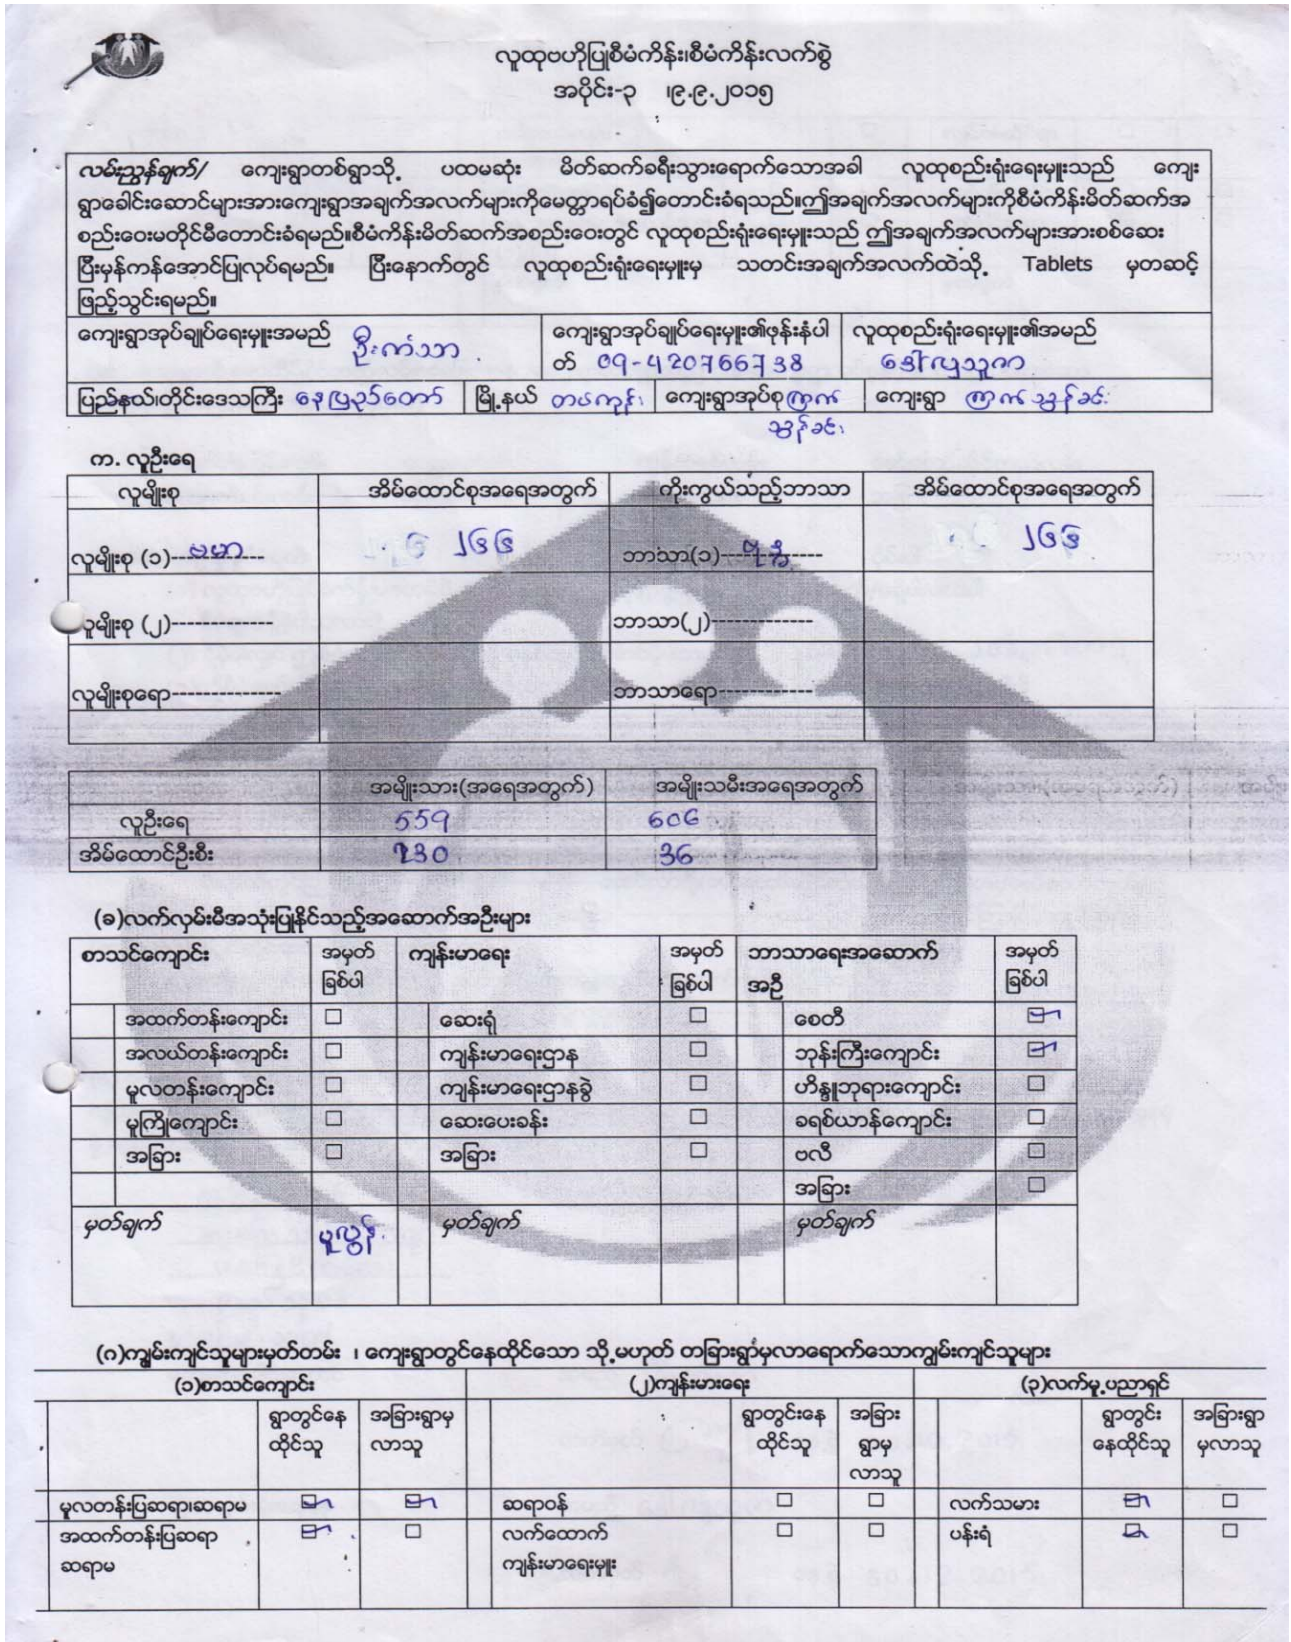 လူထုဗဟိုပြုစီမံကိန်း၊စီမံကိန်းလက်စွဲ
အပိုင်း-၃ ၊၉.၉.၂၀၁၅
လမ်းညွှန်ချက်/ ကျေးရွာတစ်ရွာသို့ ပထမဆုံး မိတ်ဆက်ခရီးသွားရောက်သောအခါ လူထုစည်းရုံးရေးမှူးသည် ကျေး
ရွာခေါင်းဆောင်များအားကျေးရွာအချက်အလက်များကိုမေတ္တာရပ်ခံ၍တောင်းခံရသည်။ဤအချက်အလက်များကိုစီမံကိန်းမိတ်ဆက်အ
စည်းဝေးမတိုင်မီတောင်းခံရမည်။စီမံကိန်းမိတ်ဆက်အစည်းဝေးတွင် လူထုစည်းရုံးရေးမှူးသည် ဤအချက်အလက်များအားစစ်ဆေး
ပြီးမှန်ကန်အောင်ပြုလုပ်ရမည်။ ပြီးနောက်တွင် လူထုစည်းရုံးရေးမှူးမှ သတင်းအချက်အလက်ထဲသို့ Tablets မှတဆင့်
ဖြည့်သွင်းရမည်။
ကျေးရွာအုပ်ချုပ်ရေးမှူးအမည် ဦးကံသာ ကျေးရွာအုပ်ချုပ်ရေးမှူး၏ဖုန်းနံပါ လူထုစည်းရုံးရေးမှူး၏အမည်
တ် 09-420766738 ဒေါ်လှသူဇာ
ပြည်နယ်၊တိုင်းဒေသကြီး နေပြည်တော် မြို့နယ် တပ်ကုန်း ကျေးရွာအုပ်စု ကြက် ကျေးရွာ ကြက်သွန်ခင်း
သွန်ခင်း
က. လူဦးရေ
လူမျိုးစု အိမ်ထောင်စုအရေအတွက် ကိုးကွယ်သည့်ဘာသာ အိမ်ထောင်စုအရေအတွက်
လူမျိုးစု (၁)--ဗမာ-- ၂၆၆ ဘာသာ(၁)--ဗုဒ္ဓ-- ၂၆၆
လူမျိုးစု (၂)------------- ဘာသာ(၂)-------------
လူမျိုးစုရော-------------- ဘာသာရော------------
အမျိုးသား(အရေအတွက်) အမျိုးသမီးအရေအတွက်
လူဦးရေ 559 606
အိမ်ထောင်ဦးစီး 230 36
(ခ)လက်လှမ်းမီအသုံးပြုနိုင်သည့်အဆောက်အဦးများ
စာသင်ကျောင်း အမှတ် ကျန်းမာရေး အမှတ် ဘာသာရေးအဆောက် အမှတ်
ခြစ်ပါ ခြစ်ပါ အဦ ခြစ်ပါ
အထက်တန်းကျောင်း ဆေးရုံ စေတီ
အလယ်တန်းကျောင်း ကျန်းမာရေးဌာန ဘုန်းကြီးကျောင်း
မူလတန်းကျောင်း ကျန်းမာရေးဌာနခွဲ ဟိန္ဒူဘုရားကျောင်း
မူကြိုကျောင်း ဆေးပေးခန်း ခရစ်ယာန်ကျောင်း
အခြား အခြား ဗလီ
အခြား
မှတ်ချက် မူလွန် မှတ်ချက် မှတ်ချက်
(ဂ)ကျွမ်းကျင်သူများမှတ်တမ်း ၊ ကျေးရွာတွင်နေထိုင်သော သို့မဟုတ် တခြားရွာမှလာရောက်သောကျွမ်းကျင်သူများ
(၁)စာသင်ကျောင်း (၂)ကျန်းမားရေး (၃)လက်မှု့ပညာရှင်
ရွာတွင်နေ အခြားရွာမှ ရွာတွင်းနေ အခြား ရွာတွင်း အခြားရွာ
ထိုင်သူ လာသူ ထိုင်သူ ရွာမှ နေထိုင်သူ မှလာသူ
လာသူ
မူလတန်းပြဆရာ၊ဆရာမ ဆရာဝန် လက်သမား
အထက်တန်းပြဆရာ လက်ထောက် ပန်းရံ
ဆရာမ ကျန်းမာရေးမှူး